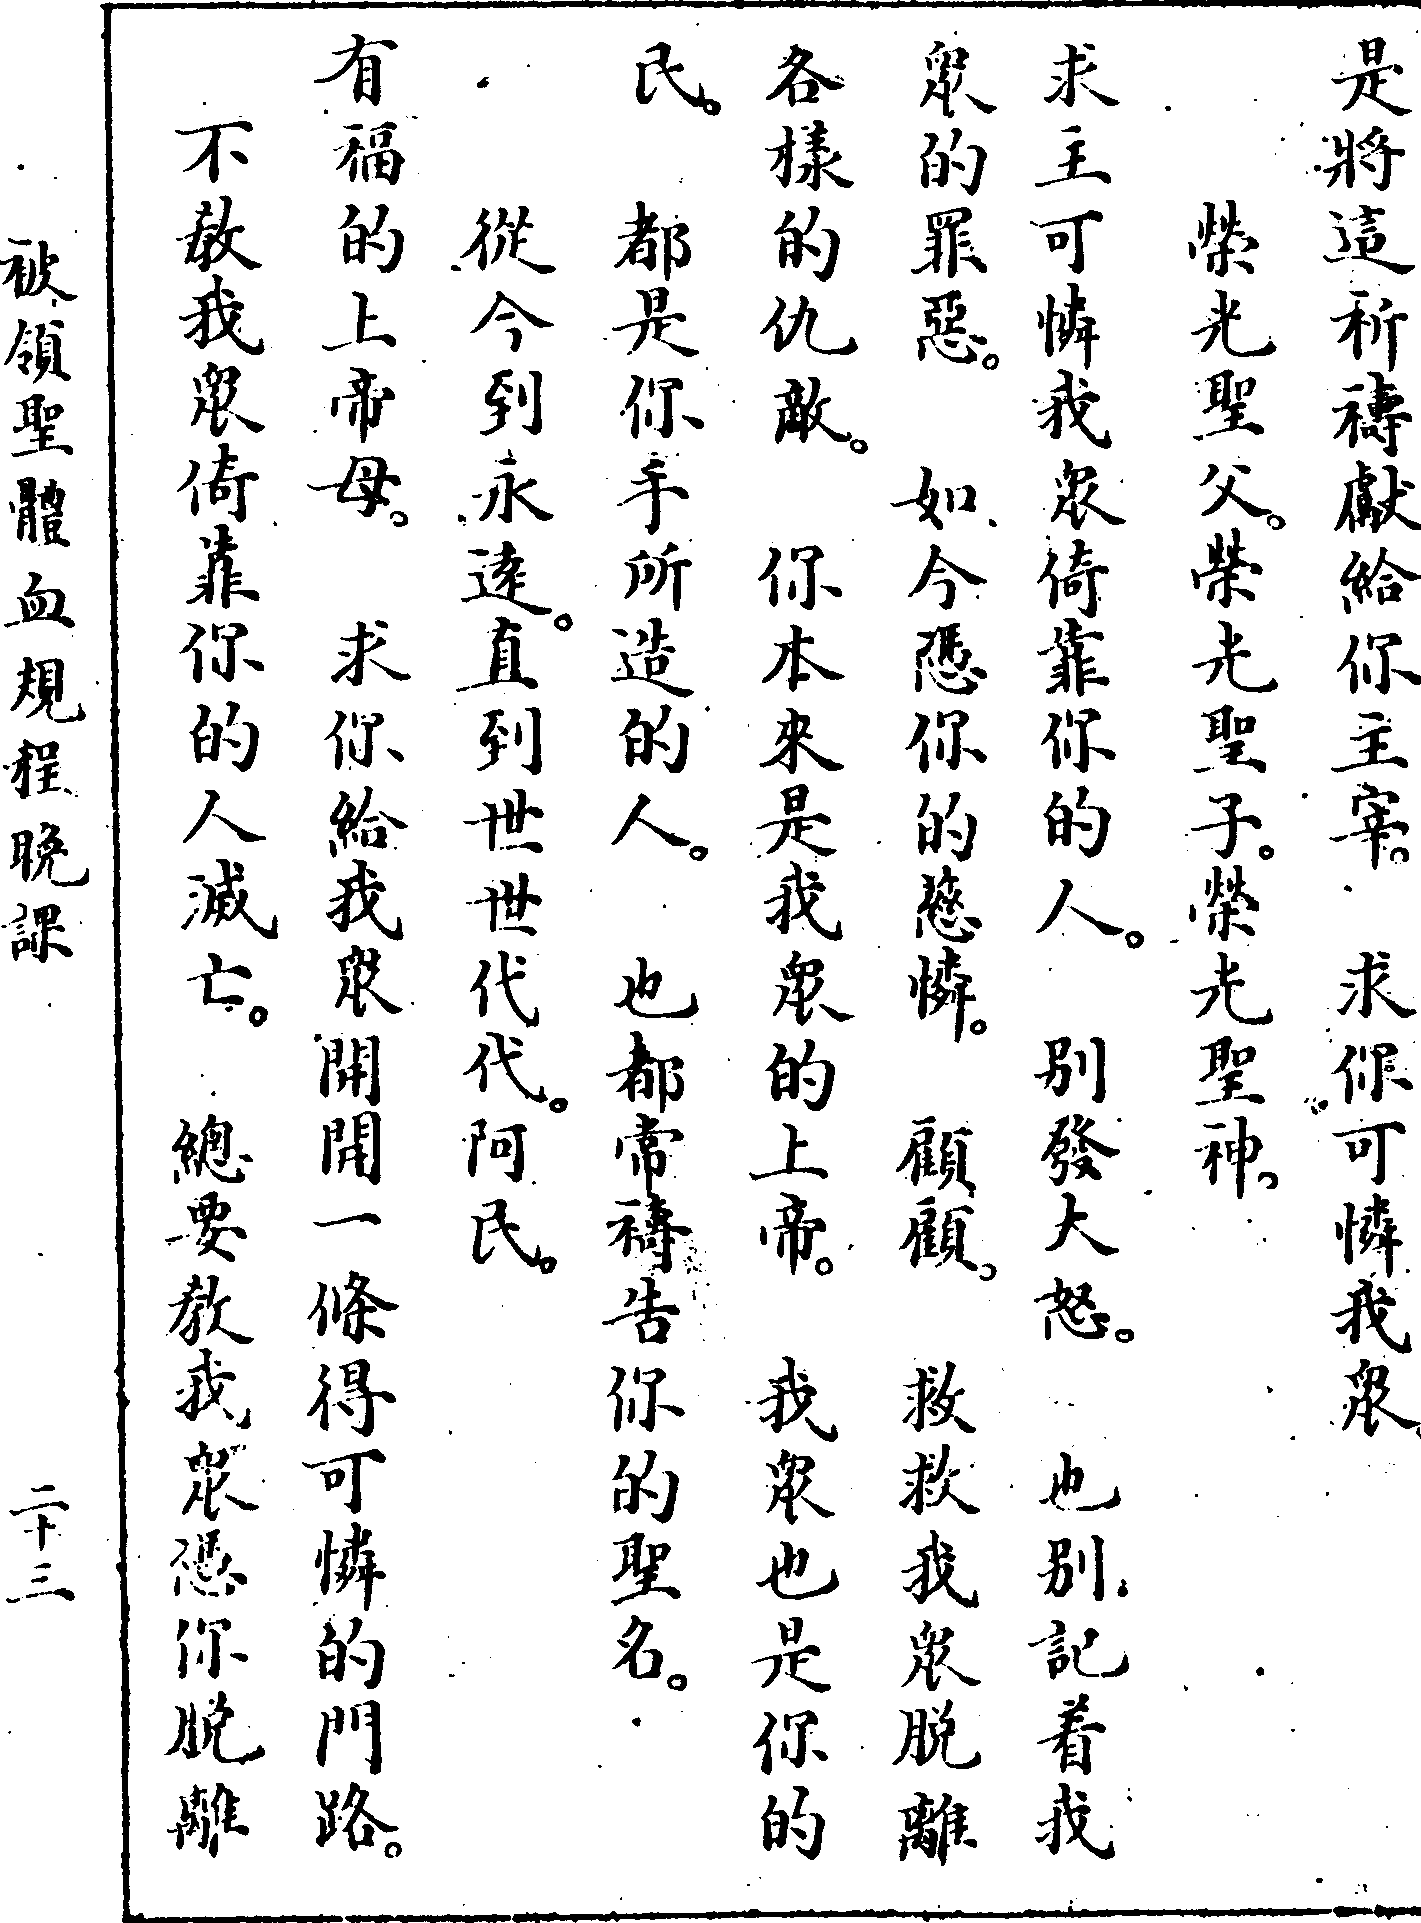 是將這祈禱獻給你主宰。 求你可憐我眾。
榮光聖父。榮光聖子。榮光聖神。
求主可憐我眾倚靠你的人。 別發大怒。 也別記着我
眾的罪惡。 如今憑你的慈憐。 顧顧。 救救我眾脱離
各樣的仇敵。 你本來是我眾的上帝。 我眾也是你的
民。 都是你手所造的人。 也都常禱告你的聖名。
從今到永遠。直到世世代代。阿民。
有福的上帝母。 求你給我眾開開一條得可憐的門路。
不教我眾倚靠你的人滅亡。 總要教我眾憑你脱離
被領聖體血規程晚課 二十三